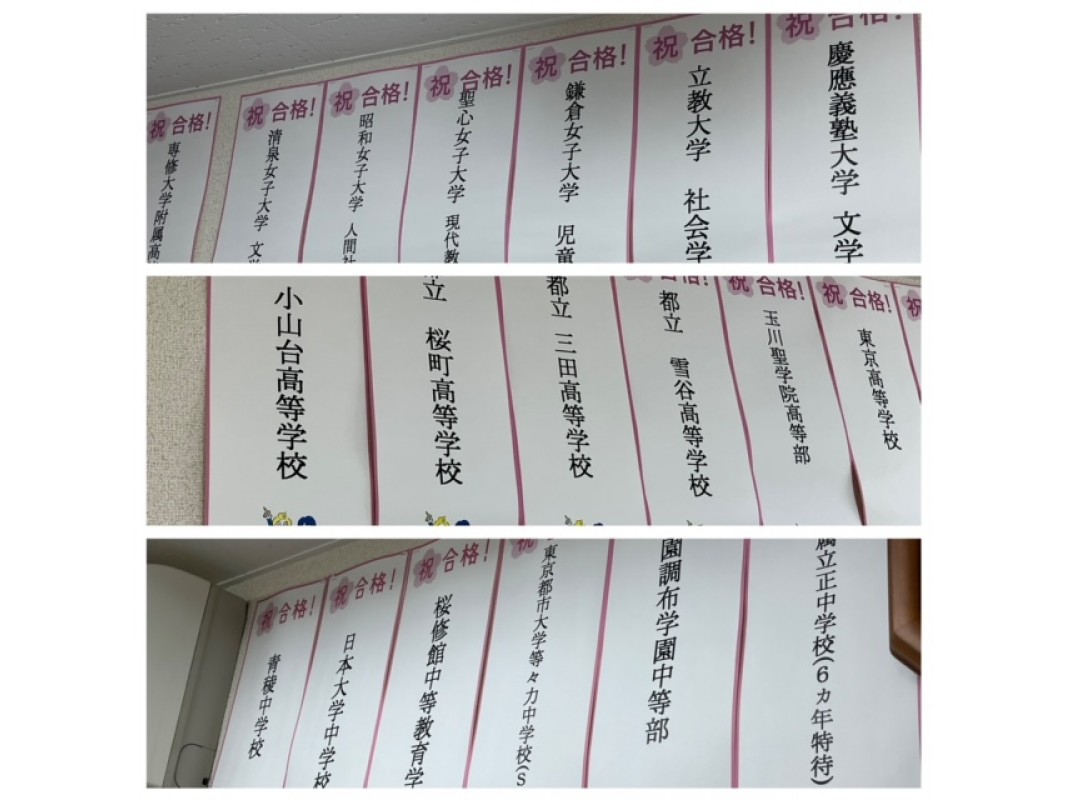 祝 合格!
慶應義塾大学 文学
祝 合格!
立教大学 社会学
祝 合格!
鎌倉女子大学 児童
祝 合格!
聖心女子大学 現代教
祝 合格!
昭和女子大学 人間社
祝 合格!
清泉女子大学 文学
祝 合格!
専修大学附属高
祝
祝 合格!
東京高等学校
祝 合格!
玉川聖学院高等部
合格!
都立 雪谷高等学校
都立 三田高等学校
立 桜町高等学校
小山台高等学校
属立正中学校(6カ年特待)
園調布学園中等部
祝
東京都市大学等々力中学校(S
祝 合格!
桜修館中等教育学
祝 合格!
日本大学中学校
祝 合格!
青稜中学校